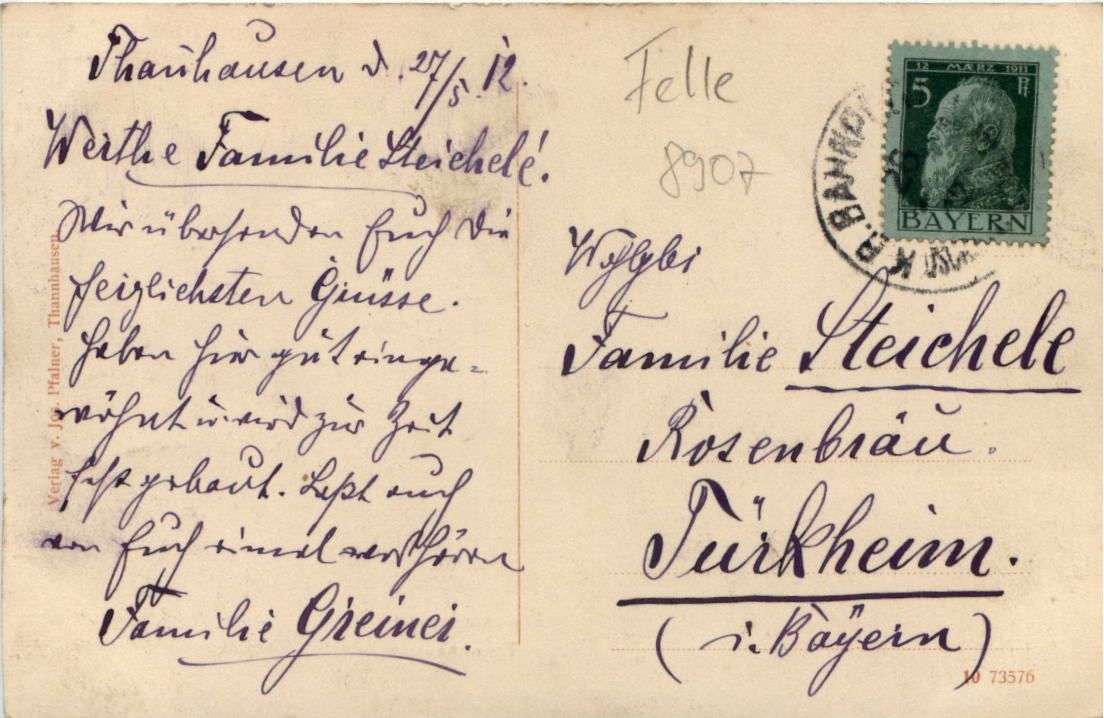 Thanhausen d. 27/5. 12.
Werthe Familie Steichele!
Wir übersenden Euch die
herzlichsten Grüsse.
Haben hier gut einge-
wöhnt u. wird zur Zeit
fest gebaut. Laßt auch
von Euch einmal was hören
Familie Greiner.
Verlag v. Jos. Pfalner, Thannhausen
Felle
8907
12 MÆRZ 1911
5 Pf
BAYERN
K.B. BAHNPOST
Wohlgb.
Familie Steichele
Rosenbräu.
Türkheim.
(i. Bayern)
10 73576